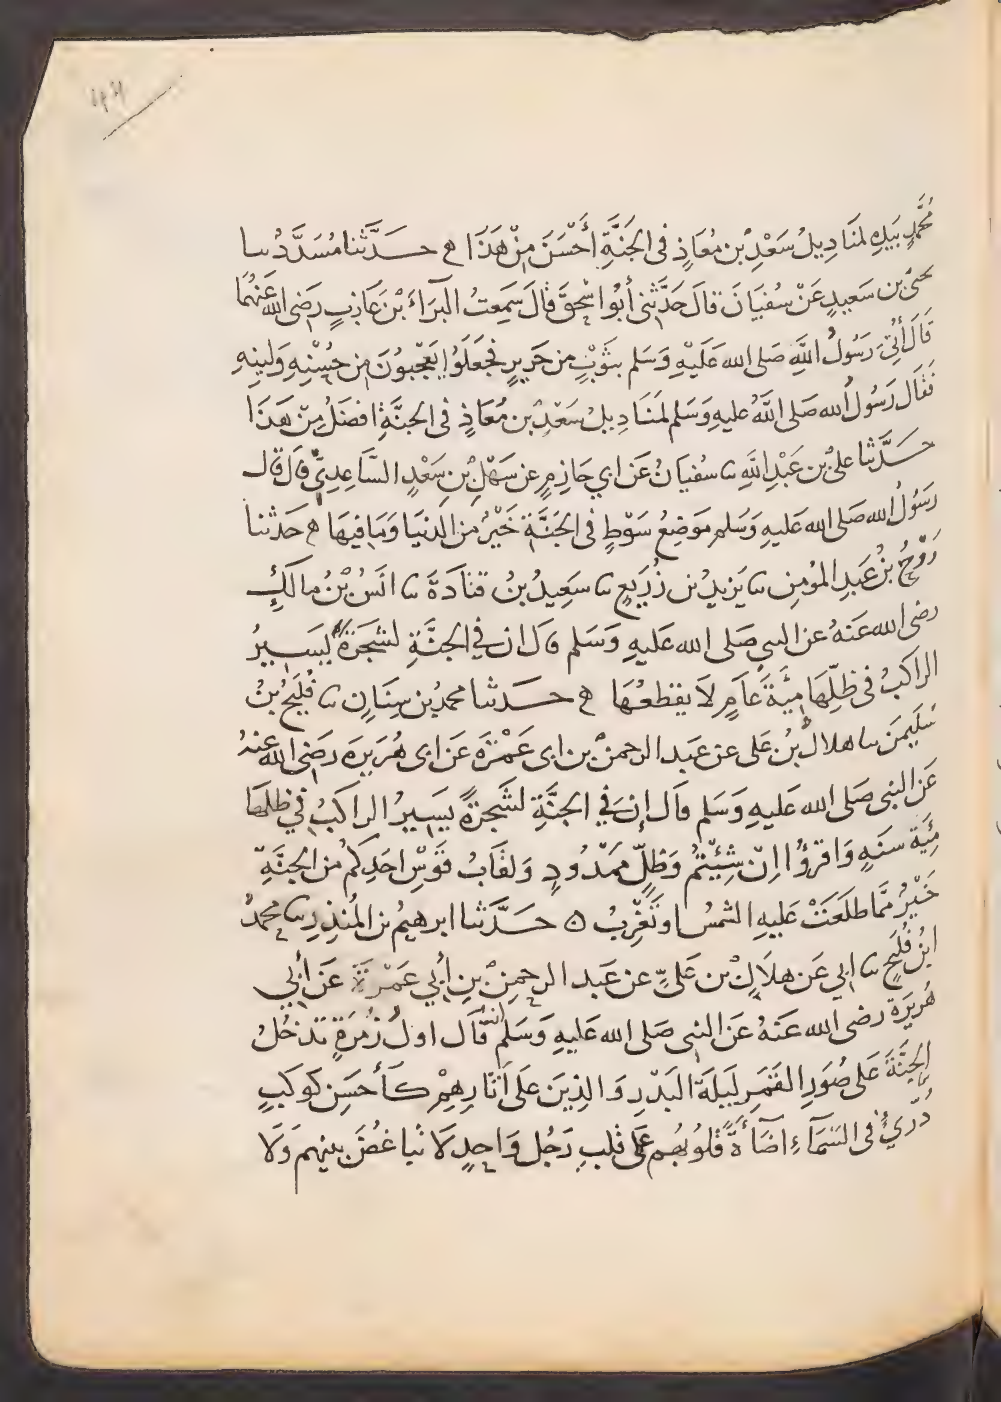 مُحَمَّدٍ بِيَدِهِ لمَنَادِيلُ سَعْدِ بْنِ مُعَاذٍ فى الجَنَّةِ أَحْسَنَ مِنْ هَذَا ھ حَدَّثَنا مُسَدَّدُ سا
يحيىٰ بن سَعِيدٍ عَنْ سُفيَانَ قالَ حَدَّثنى أبُوا سْحٰقَ قالَ سَمِعتُ البَرَاءَ بْنَ عَازِبٍ رَضِى الله عَنهُمَا
قَالَ أُتِىَ رَسُولُ اللَّهِ صَلى الله عَلَيْهِ وَسَلم بثَوْبٍ من حَرِيرٍ فجَعَلُوا يَعْجبُونَ مِن حُسْنِهِ وَلِينِهِ
فَقال رَسُولُ الله صَلى اللَّهُ عليهِ وَسَلم لَمَنَادِيلُ سَعْدِ بن مُعَاذٍ فى الجنَّةِ افضَلُ مِنْ هَذَا
حَدَّثنا علىُّ بن عَبْدِ اللَّهِ سا سُفيَانُ عَن ابي حَازِمٍ عن سَهْلِ بْنِ سَعْدٍ السَّاعِدِيِّ قال قال
رسُولُ الله صَلى الله عَليهِ وَسَلم مَوضِعُ سَوْطٍ فى الجَنَّةِ خَيْرٌ من الدنيَا وَمَا فِيهَا ھ حَدثنا
رَوْحُ بنُ عَبدِ المؤمِنِ سا يَزيدُ بن زُرَيعٍ سا سَعِيدُ بنُ قتَادَةَ سا انَسُ بْنُ مالكٍ
رضى الله عَنهُ عن النبىِ صَلى الله عَليهِ وَسَلم قال ان في الجنَّةِ لشجَرَةً يَسِيرُ
الراكبُ فى ظلِّهَا مِئَةَ عَامٍ لاَ يقطعُهَا ھ حَدثنا محمدُ بن سِنَانٍ سا فُليحُ بنُ
سُليمٰنَ سا هلالُ بنُ عَلى عن عَبد الرحمن بن ابى عَمْرَةَ عَن ابى هُرَيرَه رَضِى الله عنهُ
عَن النبى صَلى الله عَليهِ وَسَلم قال إن في الجنَّةِ لشَجرَةً يَسِيرُ الراكبُ في ظلها
مِئَةَ سَنَهٍ وَاقرؤا اِنْ شِئتُمْ وَظِلٍّ ممَدُودٍ وَلقَابُ قَوْسِ احَدِكمْ من الجنَّةِ
خَيْرٌ ممَّا طَلَعَتْ عَليهِ الشمسُ او تَغْرُبُ ه حَدَّثنا ابرهيمُ بن المُنذِرِ سا محمدُ
ابنُ فُليَحٍ سا ابي عَن هلاَلِ بْن عَلىٍّ عن عَبد الرحمنِ بنِ أبي عَمْرَةَ عَن أبي
هُرَيرَة رضى الله عَنهُ عَن النبى صَلى الله عَليهِ وَسَلم انهُ قال اولُ زُمرَةٍ تدخُلُ
الجنَّةَ عَلى صُوَرِ القَمَرِ لَيلَةَ البَدْرِ وَالذِينَ عَلَى آثارِهِمْ كَأَحسَنِ كوكبٍ
دُرِّيٍّ فى السَّمَآءِ اضَآءَةً قُلُوبُهُم عَلى قلبِ رَجُل وَاحِدٍ لَا تبَاغُضَ بينهم وَلَا